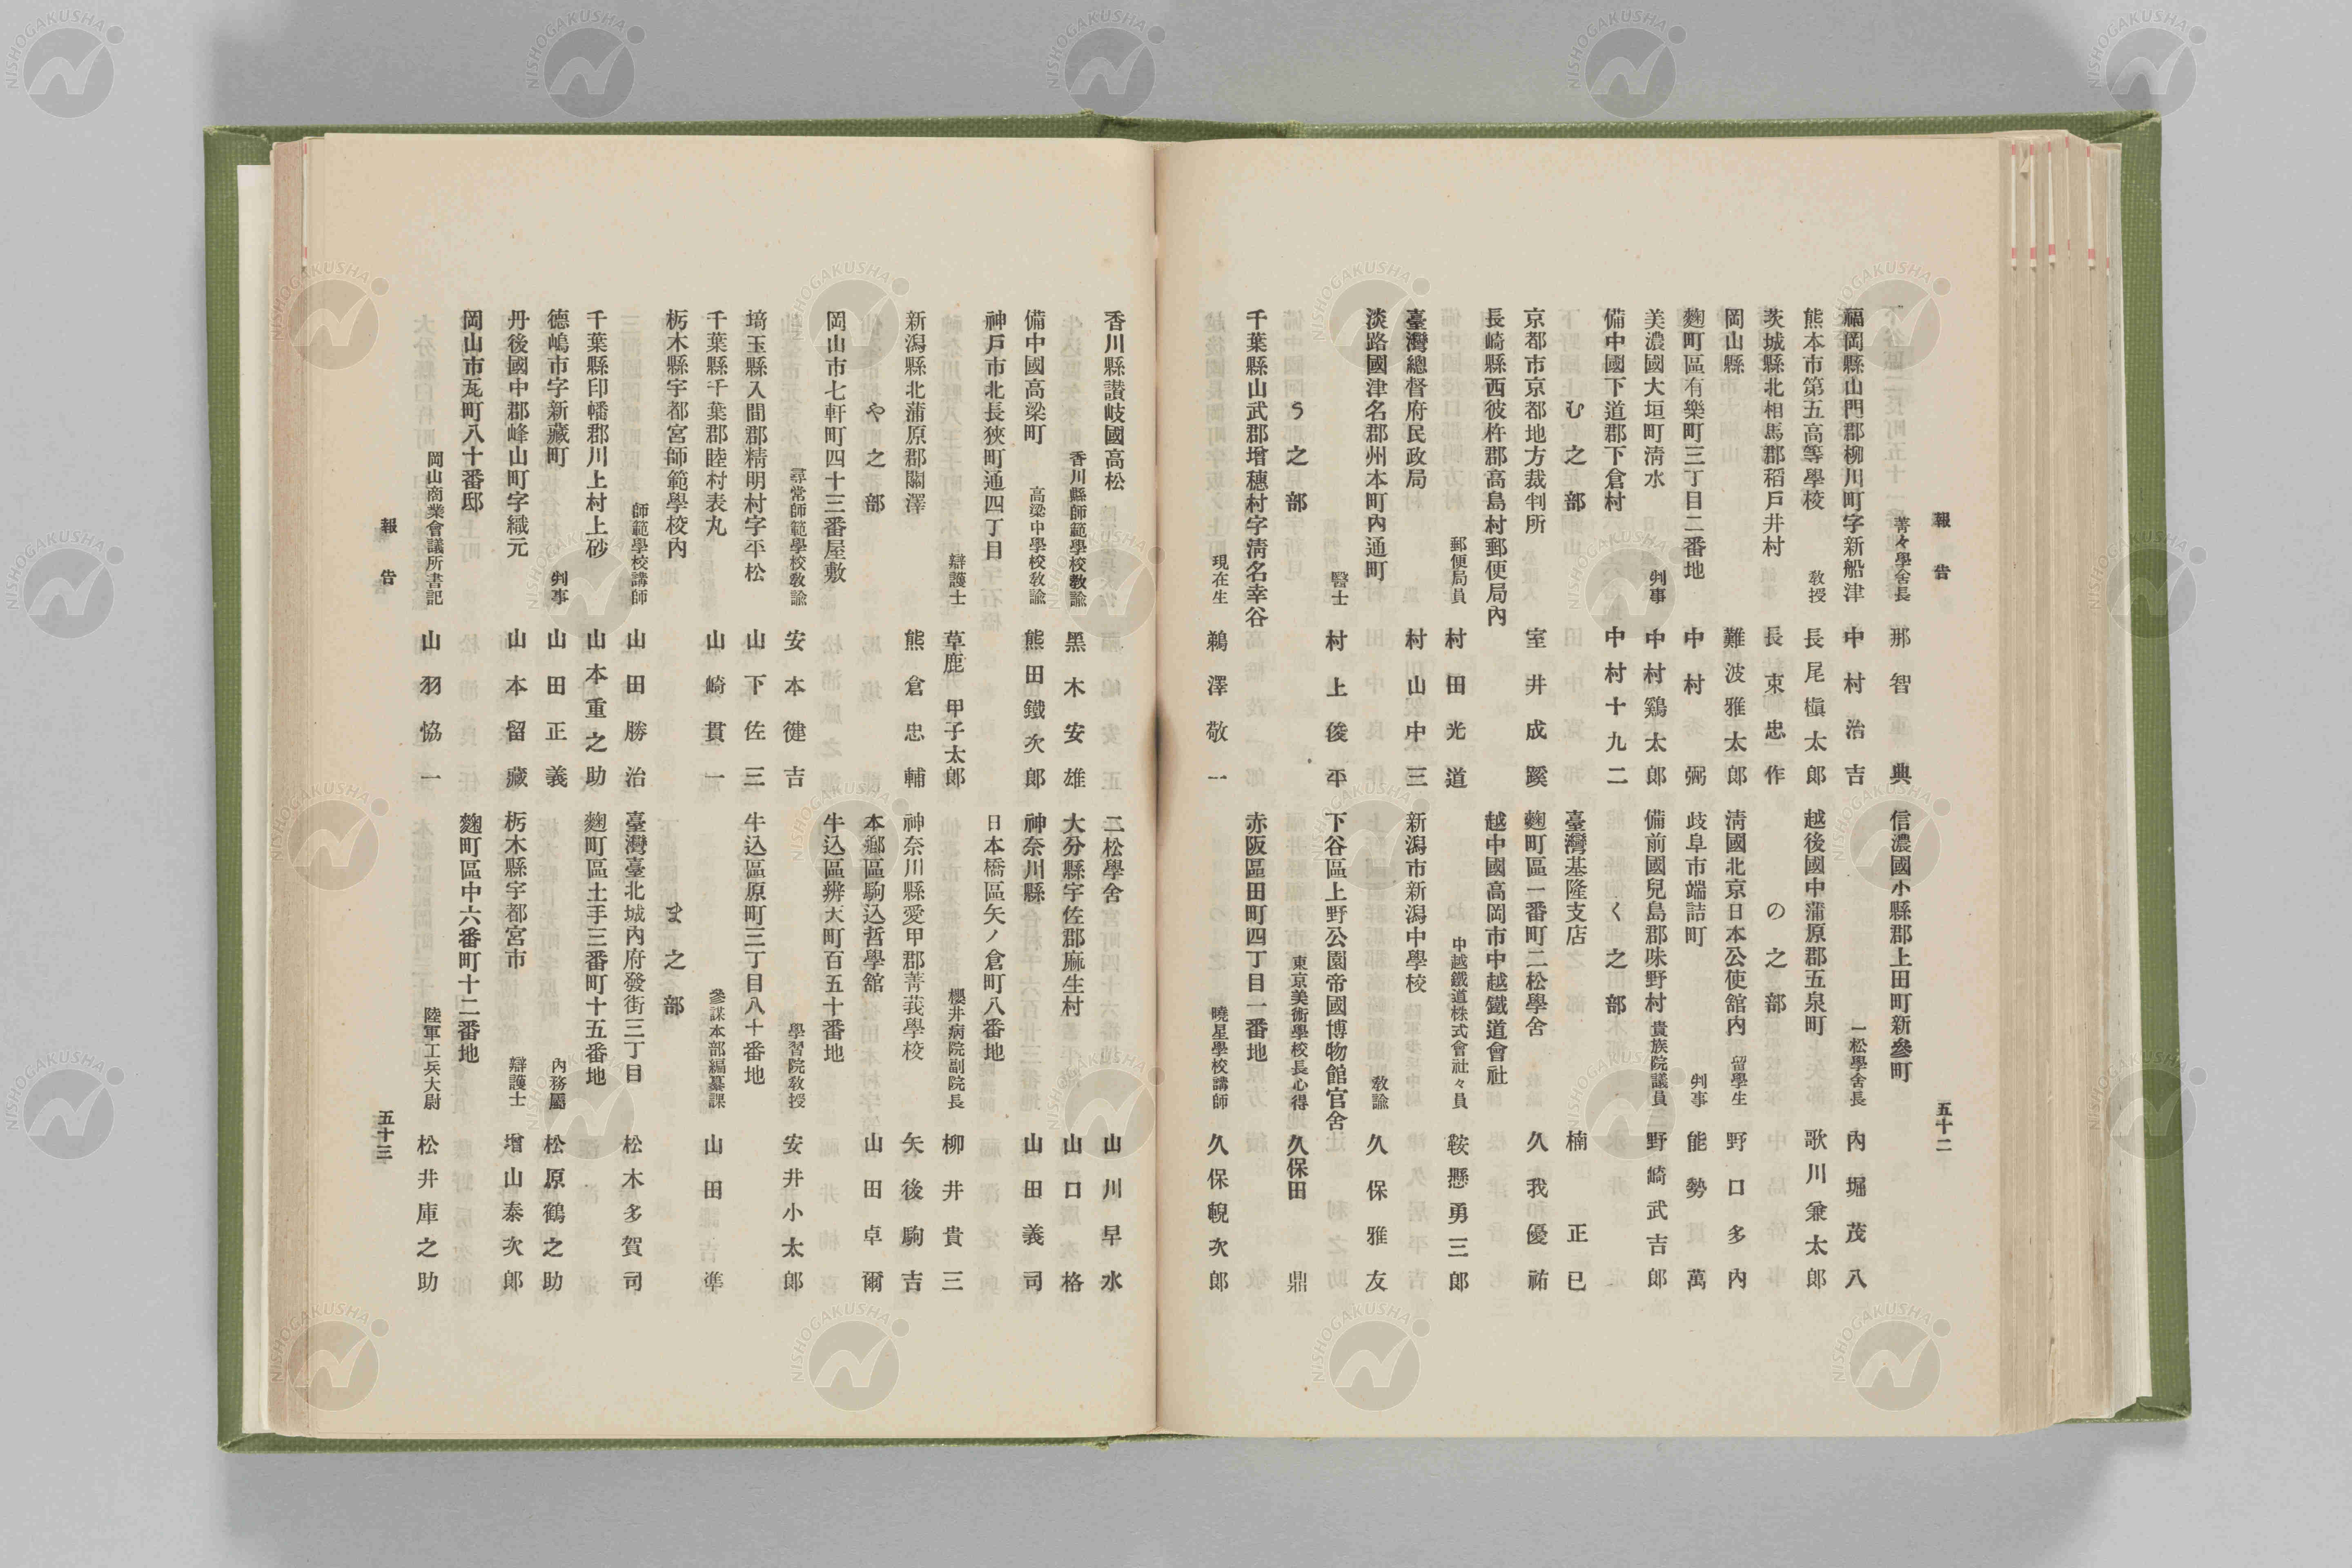 報告
五十二
菁々學舍長 那智重典
福岡縣山門郡柳川町字新船津 中村治吉
熊本市第五高等學校
教授 長尾槇太郎
茨城縣北相馬郡稻戸井村 長束忠作
岡山縣 難波雅太郎
麴町區有樂町三丁目二番地 中村弼
美濃國大垣町清水
判事 中村鷄太郎
備中國下道郡下倉村 中村十九二
む之部
京都市京都地方裁判所 室井成蹊
長崎縣西彼杵郡高島村郵便局內
郵便局員 村田光道
臺灣總督府民政局 村山中三
淡路國津名郡州本町內通町
醫士 村上俊平
う之部
千葉縣山武郡增穗村字清名幸谷
現在生 鵜澤敬一
信濃國小縣郡上田町新參町
一松學舍長 內堀茂八
越後國中蒲原郡五泉町 歌川兼太郎
の之部
淸國北京日本公使舘內 留學生 野口多內
岐阜市端詰町 判事 能勢萬
備前國兒島郡味野村 貴族院議員 野崎武吉郎
く之部
臺灣基隆支店 楠正巳
麴町區一番町二松學舍 久我優祐
越中國高岡市中越鐵道會社
中越鐵道株式會社々員 鞍懸勇三郎
新潟市新潟中學校
教諭 久保雅友
下谷區上野公園帝國博物館官舍
東京美術學校長心得 久保田鼎
赤阪區田町四丁目一番地
曉星學校講師 久保輗次郎
香川縣讃岐國高松
香川縣師範學校教諭 黑木安雄
備中國高梁町 高梁中學校敎諭 熊田鐵次郎
神戸市北長狹町通四丁目
辯護士 草鹿甲子太郎
新潟縣北蒲原郡關澤 熊倉忠輔
や之部
岡山市七軒町四十三番屋敷
尋常師範學校敎諭 安本健吉
埼玉縣入間郡精明村字平松 山下佐三
千葉縣千葉郡睦村表丸 山崎貫一
栃木縣宇都宮師範學校內
師範學校講師 山田勝治
千葉縣印幡郡川上村上砂 山本重之助
德嶋市字新藏町 判事 山田正義
丹後國中郡峰山町字織元 山本留藏
岡山市瓦町八十番邸
岡山商業會議所書記 山羽恊一
二松學舍 山川早水
大分縣宇佐郡麻生村 山口格
神奈川縣 山田義司
日本橋區矢ノ倉町八番地
櫻井病院副院長 柳井貴三
神奈川縣愛甲郡菁莪學校 矢後駒吉
本鄕區駒込哲學館 山田卓爾
牛込區辨天町百五十番地
學習院敎授 安井小太郎
牛込區原町三丁目八十番地
參謀本部編纂課 山田準
ま之部
臺灣臺北城內府發街三丁目 松木多賀司
麴町區土手三番町十五番地
內務屬 松原鶴之助
栃木縣宇都宮市 辯護士 增山泰次郎
麴町區中六番町十二番地
陸軍工兵大尉 松井庫之助
報告
五十三